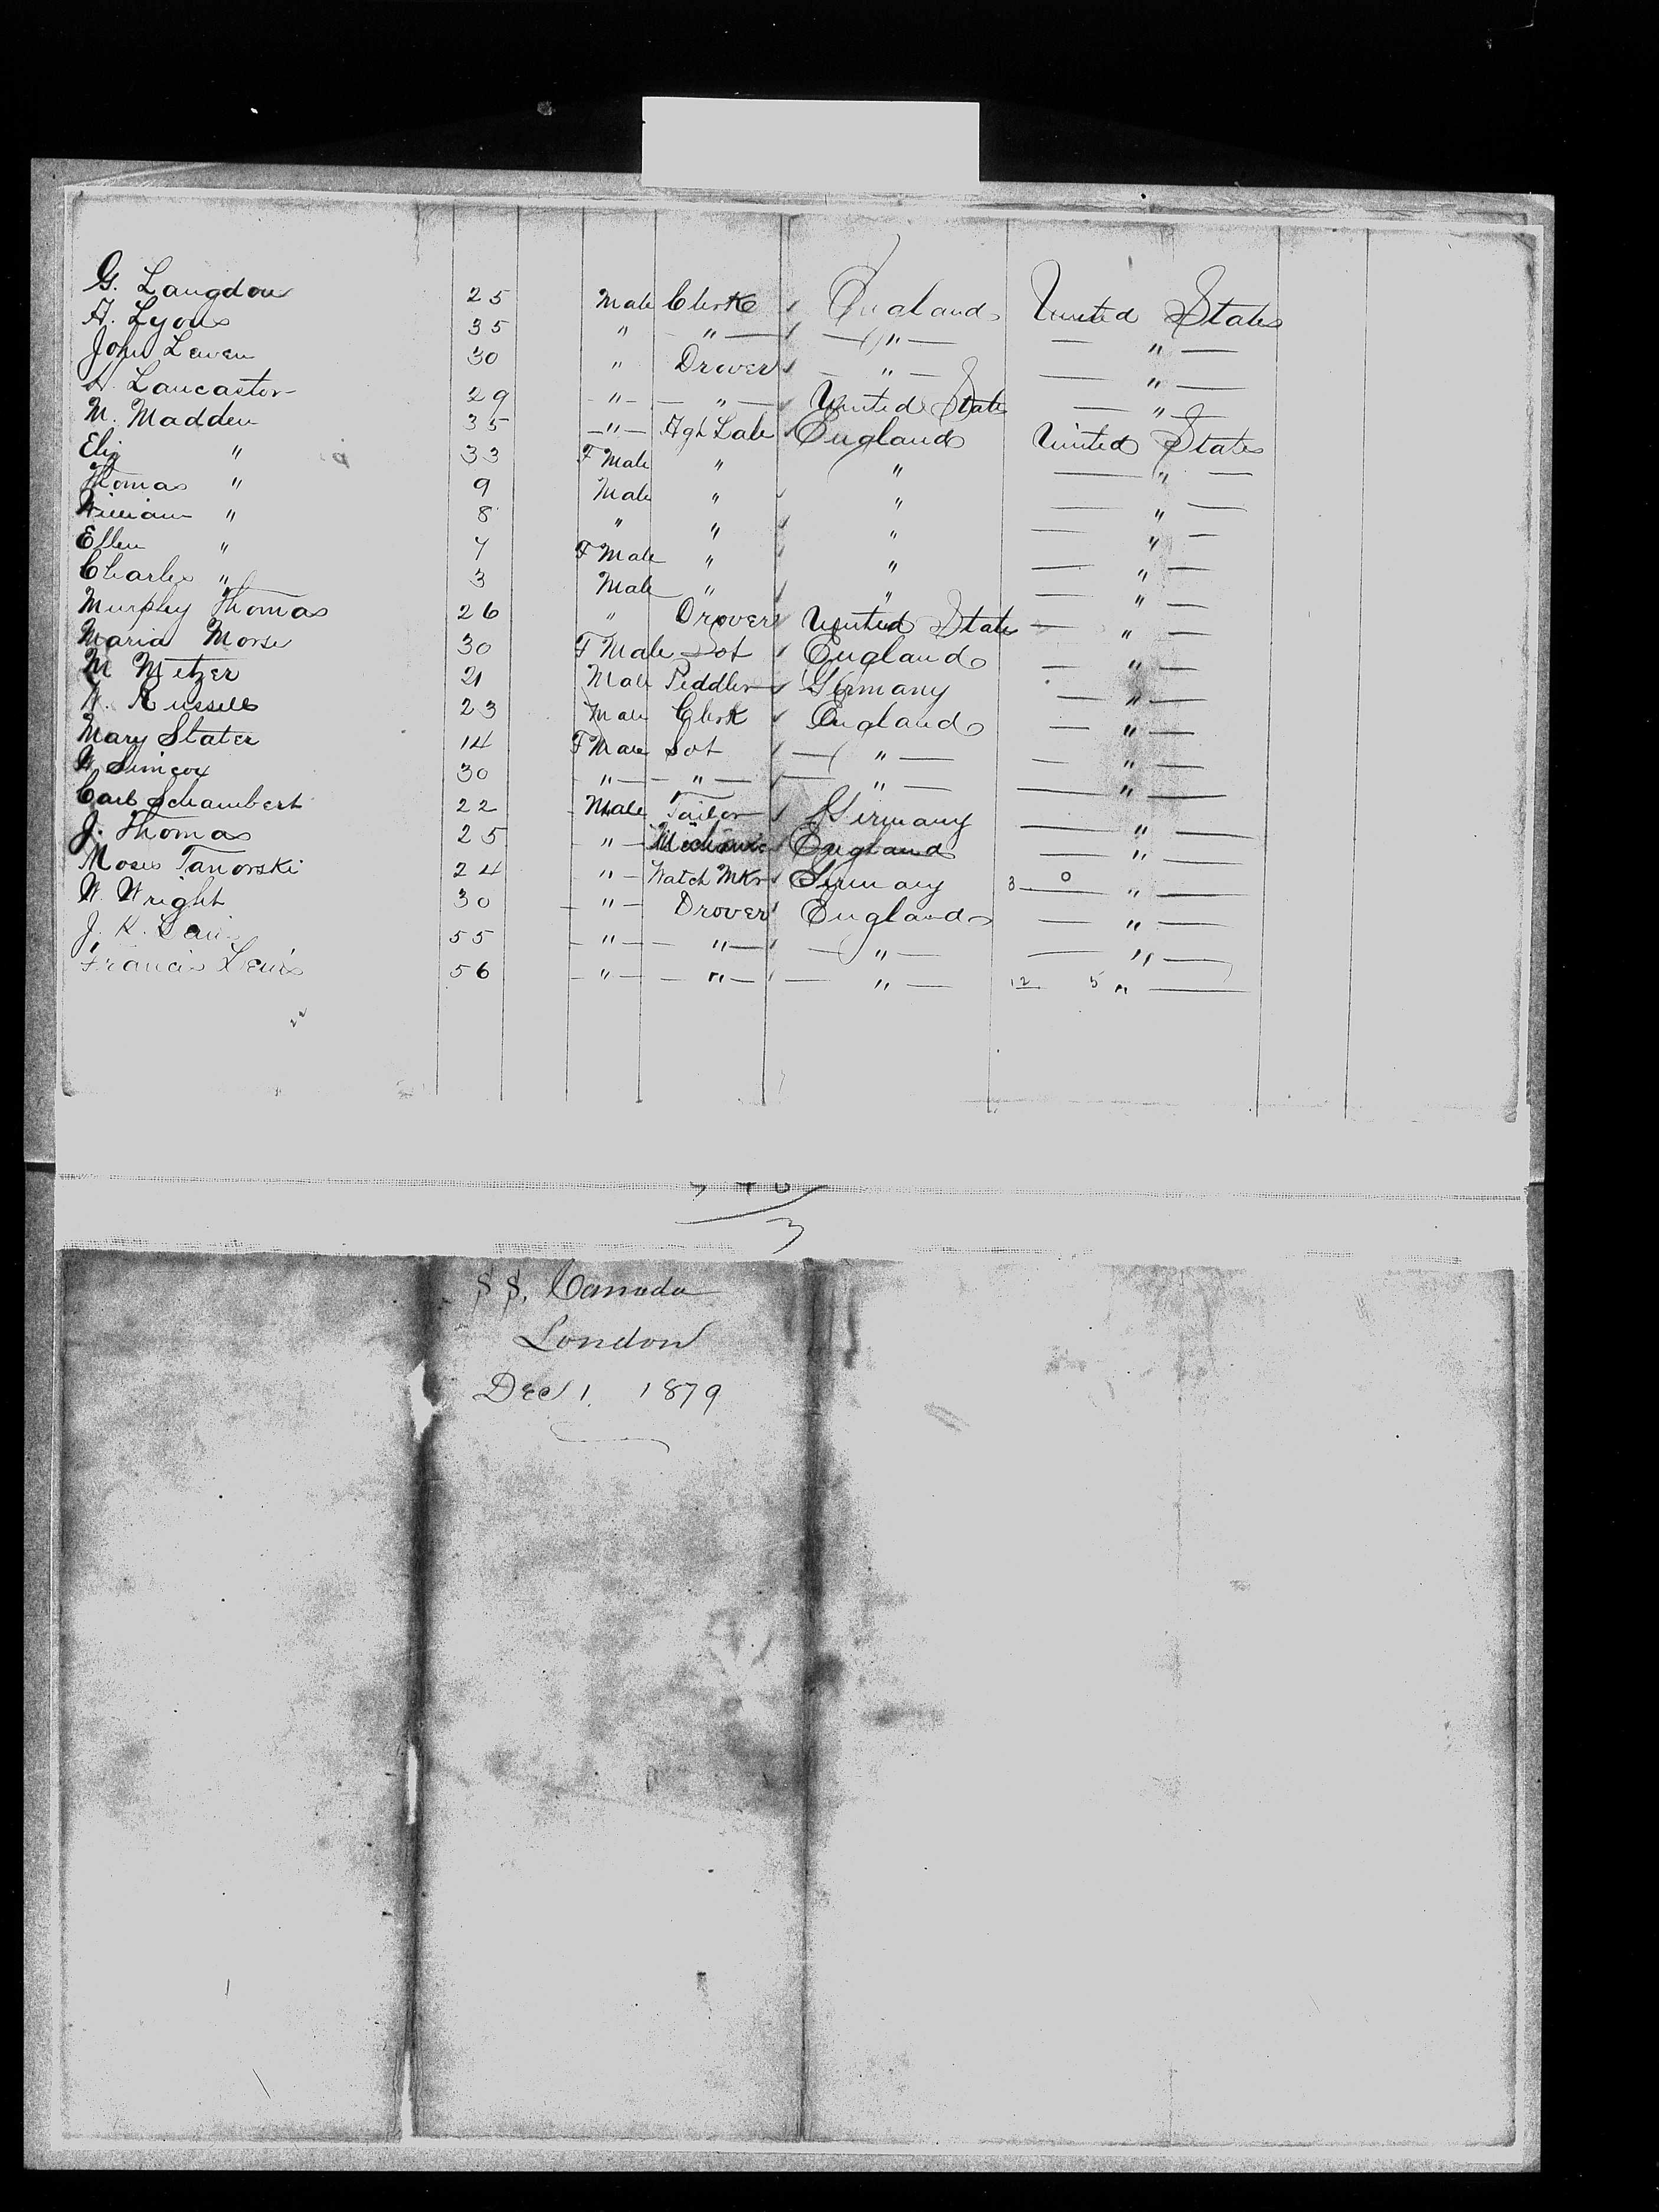 G. Langdon 25 Male Clerk England United States
A. Lyons 35 " " " "
John Leven 30 " Drover " "
A. Lancaster 29 " " United States "
M. Madden 35 " Agl Lab England United States
Eliz " 33 F Male " " "
Thomas " 9 Male " " "
William " 8 " " " "
Ellen " 7 F Male " " "
Charles " 3 Male " " "
Murphy Thomas 26 " Drover United States "
Maria Morse 30 F Male Sot England "
M Metzer 21 Male Peddler Germany "
W. Russell 23 Male Clerk England "
Mary Slater 14 F Male Sot " "
W Simcox 30 " " " "
Carl Schambert 22 Male Tailor Germany "
J. Thomas 25 " Mechanic England "
Moses Tanorski 24 " Watch Mkr Germany 3 0 "
W. Wright 30 " Drover England "
J. K. 55 " " " "
Francis Lewis 56 " " " 12 5 "
3
SS. Canada
London
Dec 1. 1879